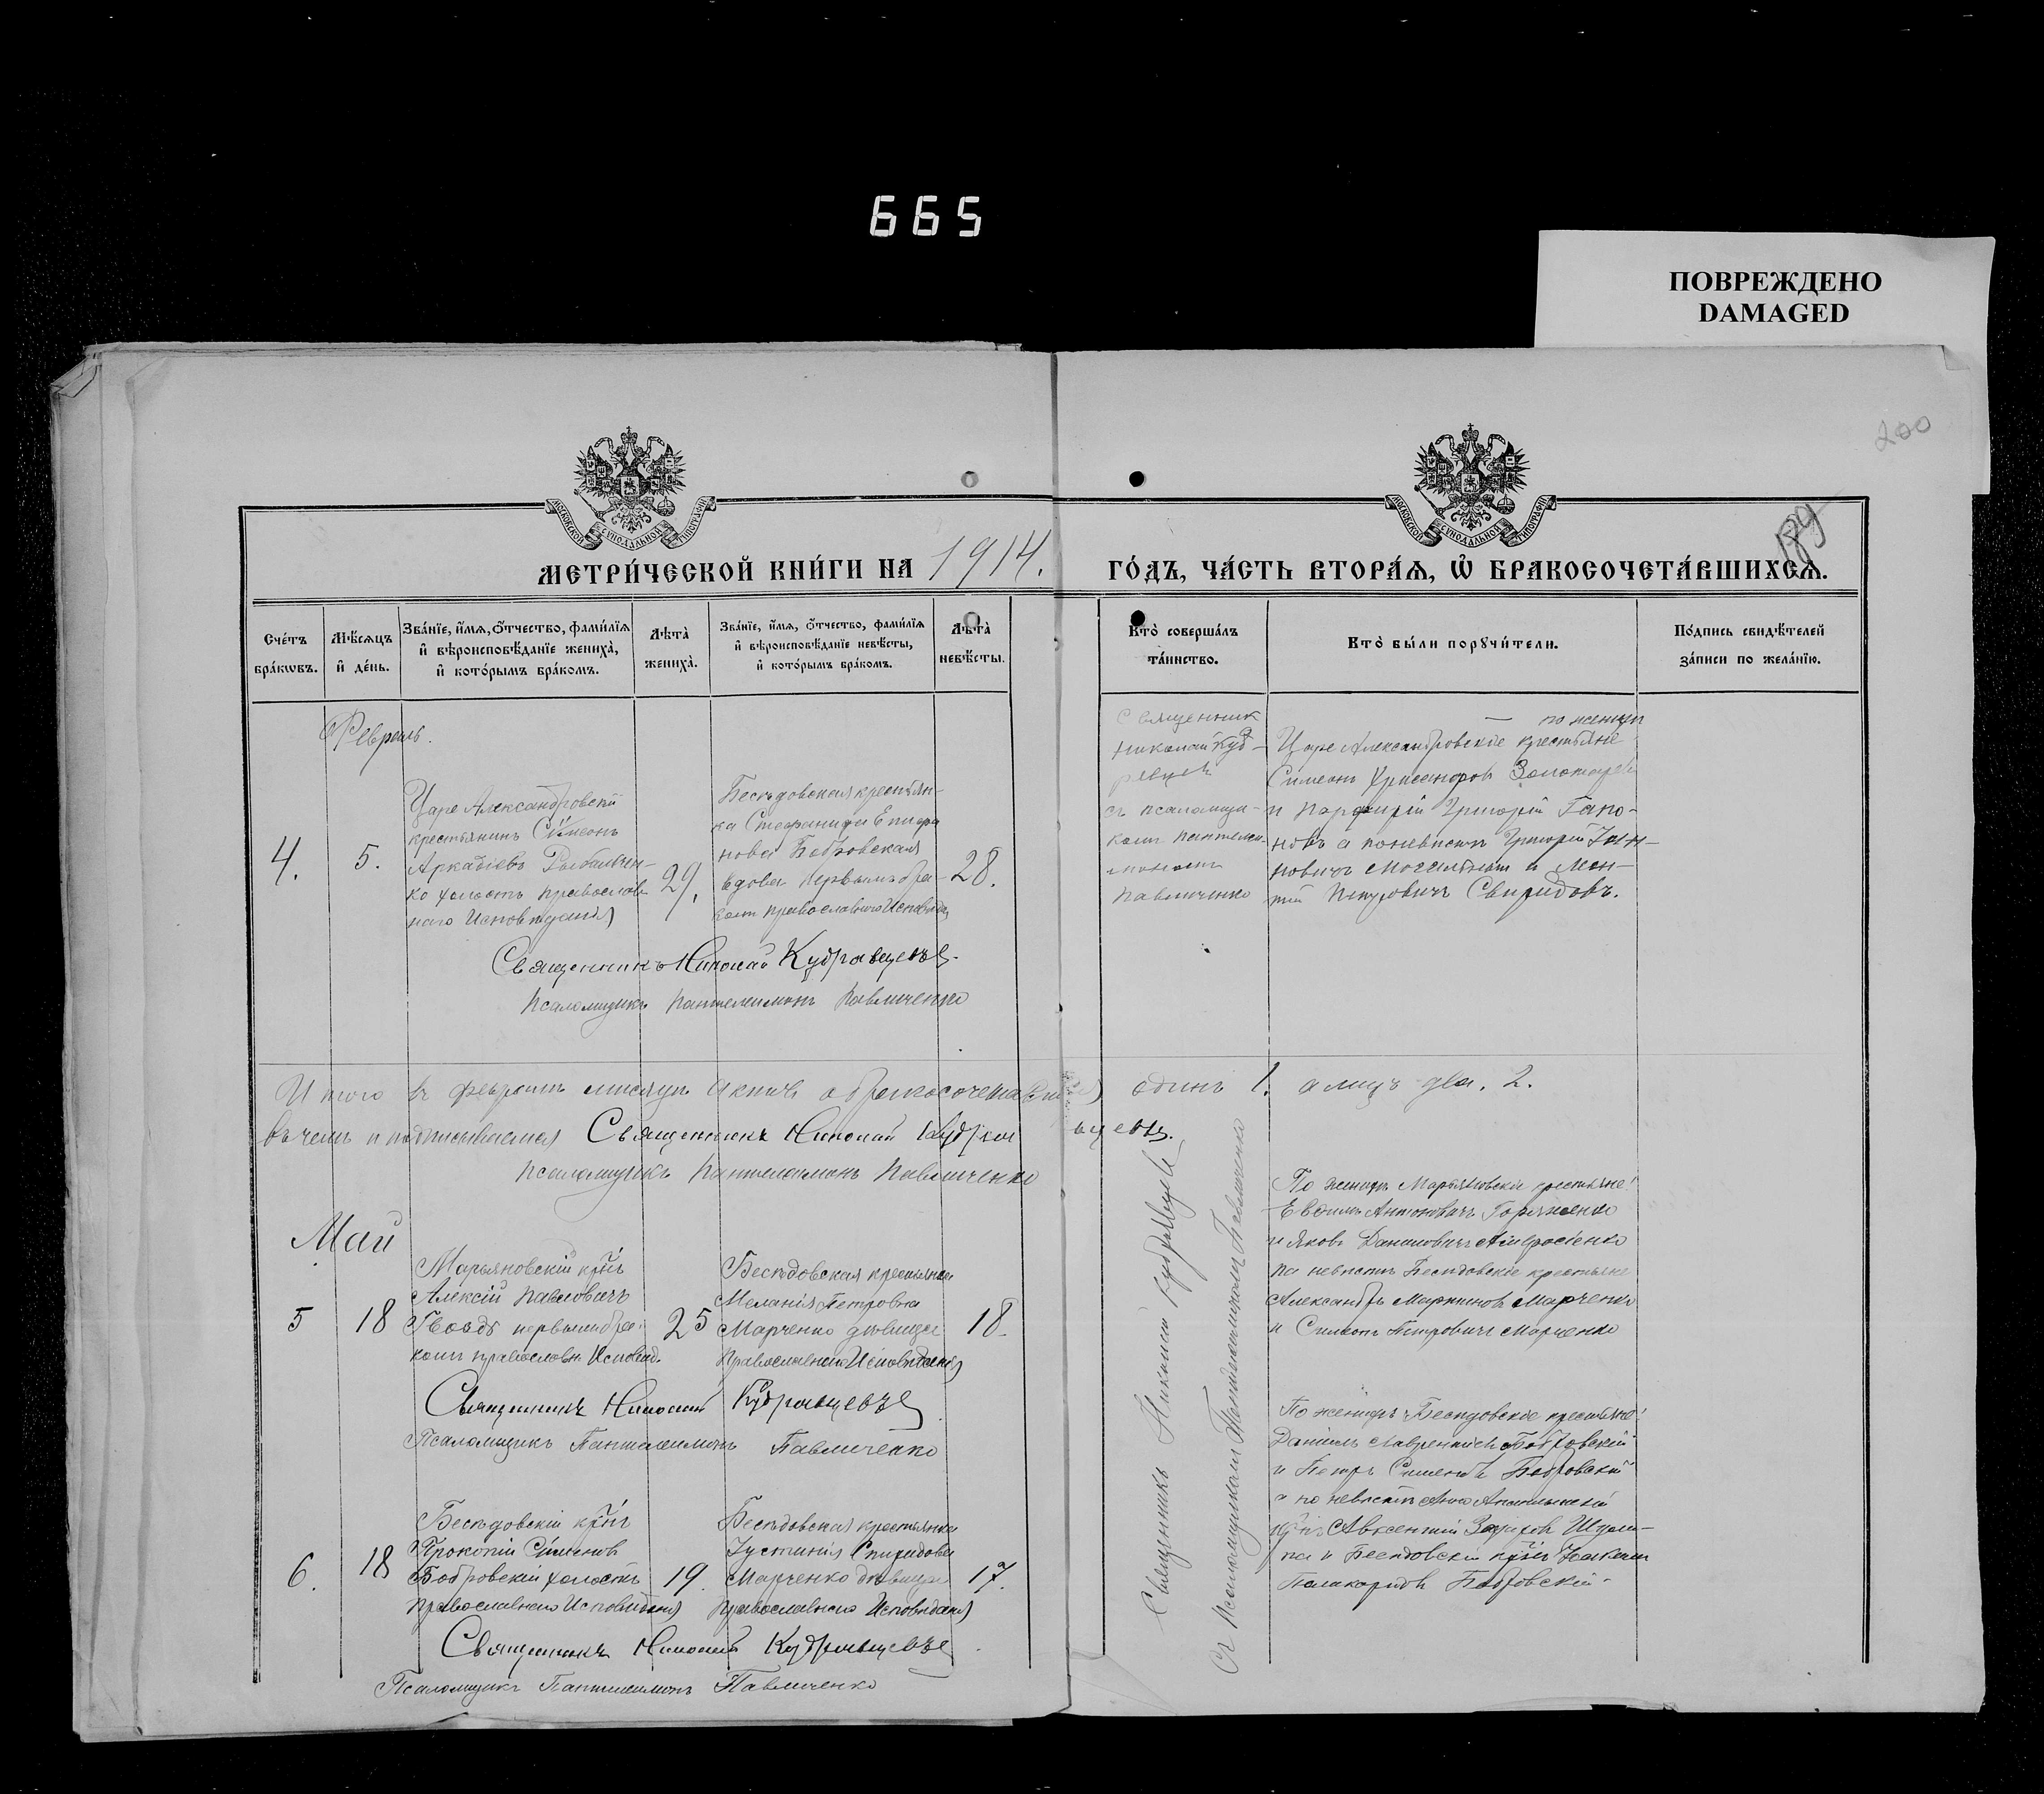 665
ПОВРЕЖДЕНО
DAMAGED
200
189
МОСКОВСКОЙ СѴНОДАЛЬНОЙ ТИПОГРАФІИ
МОСКОВСКОЙ СѴНОДАЛЬНОЙ ТИПОГРАФІИ
МЕТРИ́ЧЕСКОЙ КНИ́ГИ НА 1914. ГО́ДЪ, ЧА́СТЬ ВТОРА́Ѧ, Ѽ БРАКОСОЧЕТА́ВШИХСѦ.
Сче́тъ бра́кωвъ.
Мѣ́сяцъ и҆ де́нь.
Зва́нїе, и҆́мя, ѻ҆́тчество, фами́лїя и҆ вѣроисповѣ́данїе жениха̀, и҆ кото́рымъ бра́комъ.
Лѣта̀ жениха̀.
Зва́нїе, и҆́мя, ѻ҆́тчество, фами́лїя и҆ вѣроисповѣ́данїе невѣ́сты, и҆ кото́рымъ бра́комъ.
Лѣта̀ невѣ́сты.
Кто̀ соверша́лъ та́инство.
Кто̀ бы́ли порꙋчи́тели.
По́дпись свидѣ́телей за́писи по жела́нїю.
Февраль.
4.
5.
Царе Александровскій
крестьянинъ Сѵмеонъ
Аркадіевъ Рыбальчен-
ко холостъ православ
наго Исповѣданія
29.
Бесѣдовская крестьян-
ка Стефанида Епифа
нова Бобровская
вдова первымъ бра-
комъ православнаго Исповѣд
28.
Священник
Николай Куд-
рявцев
съ псаломщи-
ком Пантелеи-
моном
Павличенко
— по жениху
Царе Александровскіе крестьяне
Симеонъ Золотарев
и Парфирій Григорій Гапо-
новъ а по невѣстѣ Григорій
новичъ и Леон-
тій Петровичъ Свиридовъ.
Священникъ Николай Кудрявцевъ
Псаломщикъ Пантелеимонъ Павличенко
Итого въ февралѣ мѣсяцѣ Актовъ о бракосочетавшихся одинъ 1. а лицъ два. 2.
въ чемъ и подписываемся Священникъ Николай Кудрявцевъ.
Псаломщикъ Пантелеимонъ Павличенко
Май
5
18
Марьяновскій крнъ
Алексій Павловичъ
Гвоздь первымъ бра-
комъ православн. Исповѣд.
25
Бесѣдовская крестьянка
Меланія Петровна
Марченко дѣвица
православнаго Исповѣданія
18.
Священникъ Николай Кудрявцев
Съ Псаломщикомъ Пантелеимономъ Павличенко
По жениху Марьяновскіе крестьяне:
Евфимъ Антоновичъ
и Яковъ Даниловичъ Амвросіенко
по невѣстѣ Бесѣдовскіе крестьяне
Александръ Мартиновъ Марченко
и Симеонъ Петровичъ Марченко
Священникъ Николай Кудрявцевъ
Псаломщикъ Пантелеимонъ Павличенко
6.
18
Бесѣдовскій крнъ
Прокопій Симеоновъ
Бобровскій холостъ
православнаго Исповѣданія
19.
Бесѣдовская крестьянка
Іустинія Спиридова
Марченко дѣвица
православнаго Исповѣданія
17.
По жениху Бесѣдовскіе крестьяне:
Даніилъ Лаврентіевъ Бобровскій
и Петръ Симеоновъ Бобровскій
а по невѣстѣ
крнъ Авксентій Захаров
и Бесѣдовскій крнъ Іоакимъ
Поликарповъ Бобровскій.
Священникъ Николай Кудрявцевъ
Псаломщикъ Пантелеимонъ Павличенко